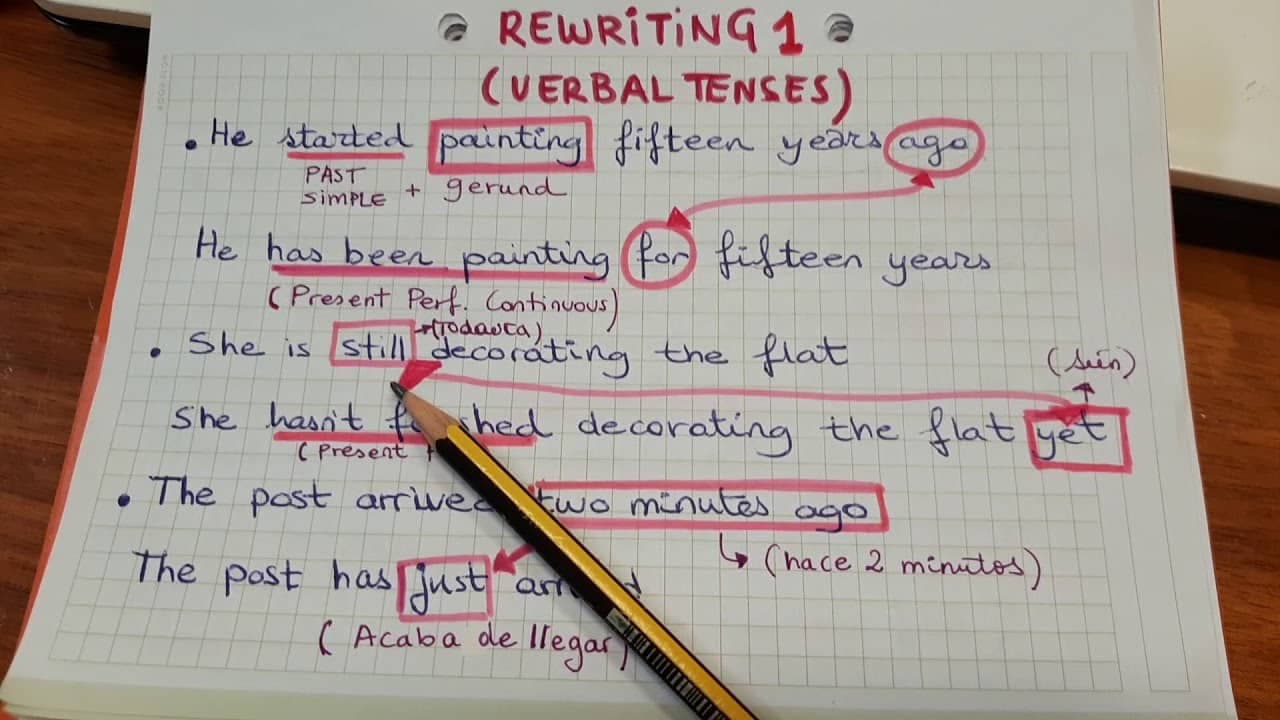 REWRITING 1
(VERBAL TENSES)
• He started painting fifteen years ago
PAST SIMPLE + gerund
He has been painting for fifteen years
(Present Perf. Continuous)
→(TODAVÍA)
• She is still decorating the flat
(aún)
She hasn't decorating the flat yet
(Present
• The post arrived two minutes ago
↳ (hace 2 minutos)
The post has just
(Acaba de llegar)